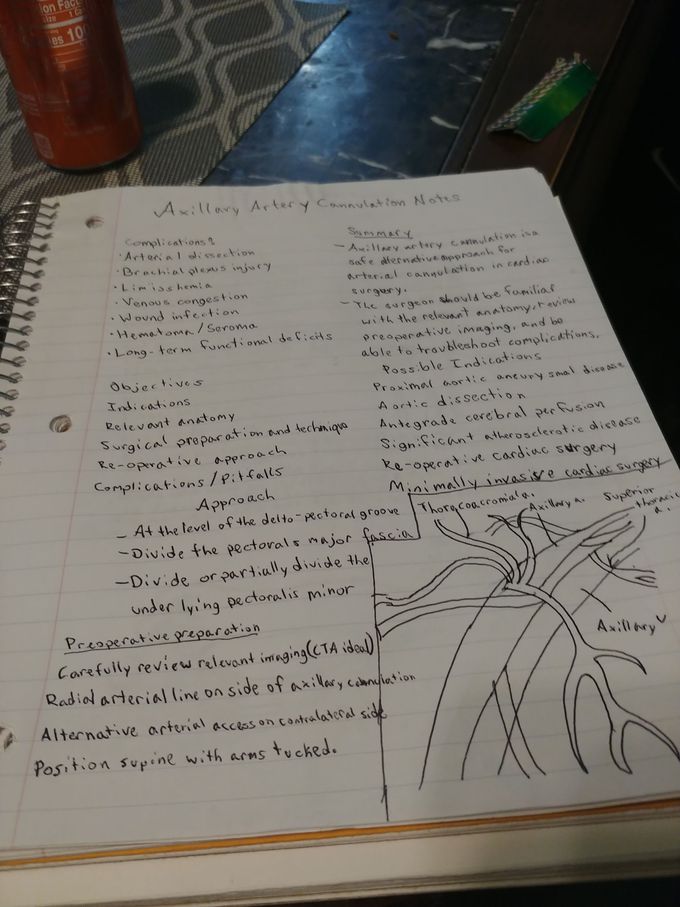 on Fact
ize 1 Ca
es 100
Axillary Artery Cannulation Notes
Complications?
· Arterial dissection
· Brachial plexus injury
· Lim isshemia
· Venous congestion
· Wound infection
· Hematoma/Seroma
· Long-term functional deficits
Objectives
Indications
Relevant anatomy
Surgical preparation and technique
Re-operative approach
Complications/Pitfalls
Approach
- At the level of the delto-pectoral groove
- Divide the pectorals major fascia
- Divide or partially divide the
under lying pectoralis minor
Preoperative preparation
Carefully review relevant imaging (CTA ideal)
Radial arterial line on side of axillary cannulation
Alternative arterial access on contralateral side
Position supine with arms tucked.
Summary
- Axillary artery cannulation is a
safe alternative approach for
arterial cannulation in cardiac
surgery.
- The surgeon should be familiar
with the relevant anatomy, review
preoperative imaging, and be
able to troubleshoot complications.
Possible Indications
Proximal aortic aneurysmal disease
Aortic dissection
Antegrade cerebral perfusion
Significant atherosclerotic disease
Re-operative cardiac surgery
Minimally invasive cardiac surgery
Thorgcoacromial a.
Axillary a.
Superior
thoracic
a.
Axillary v